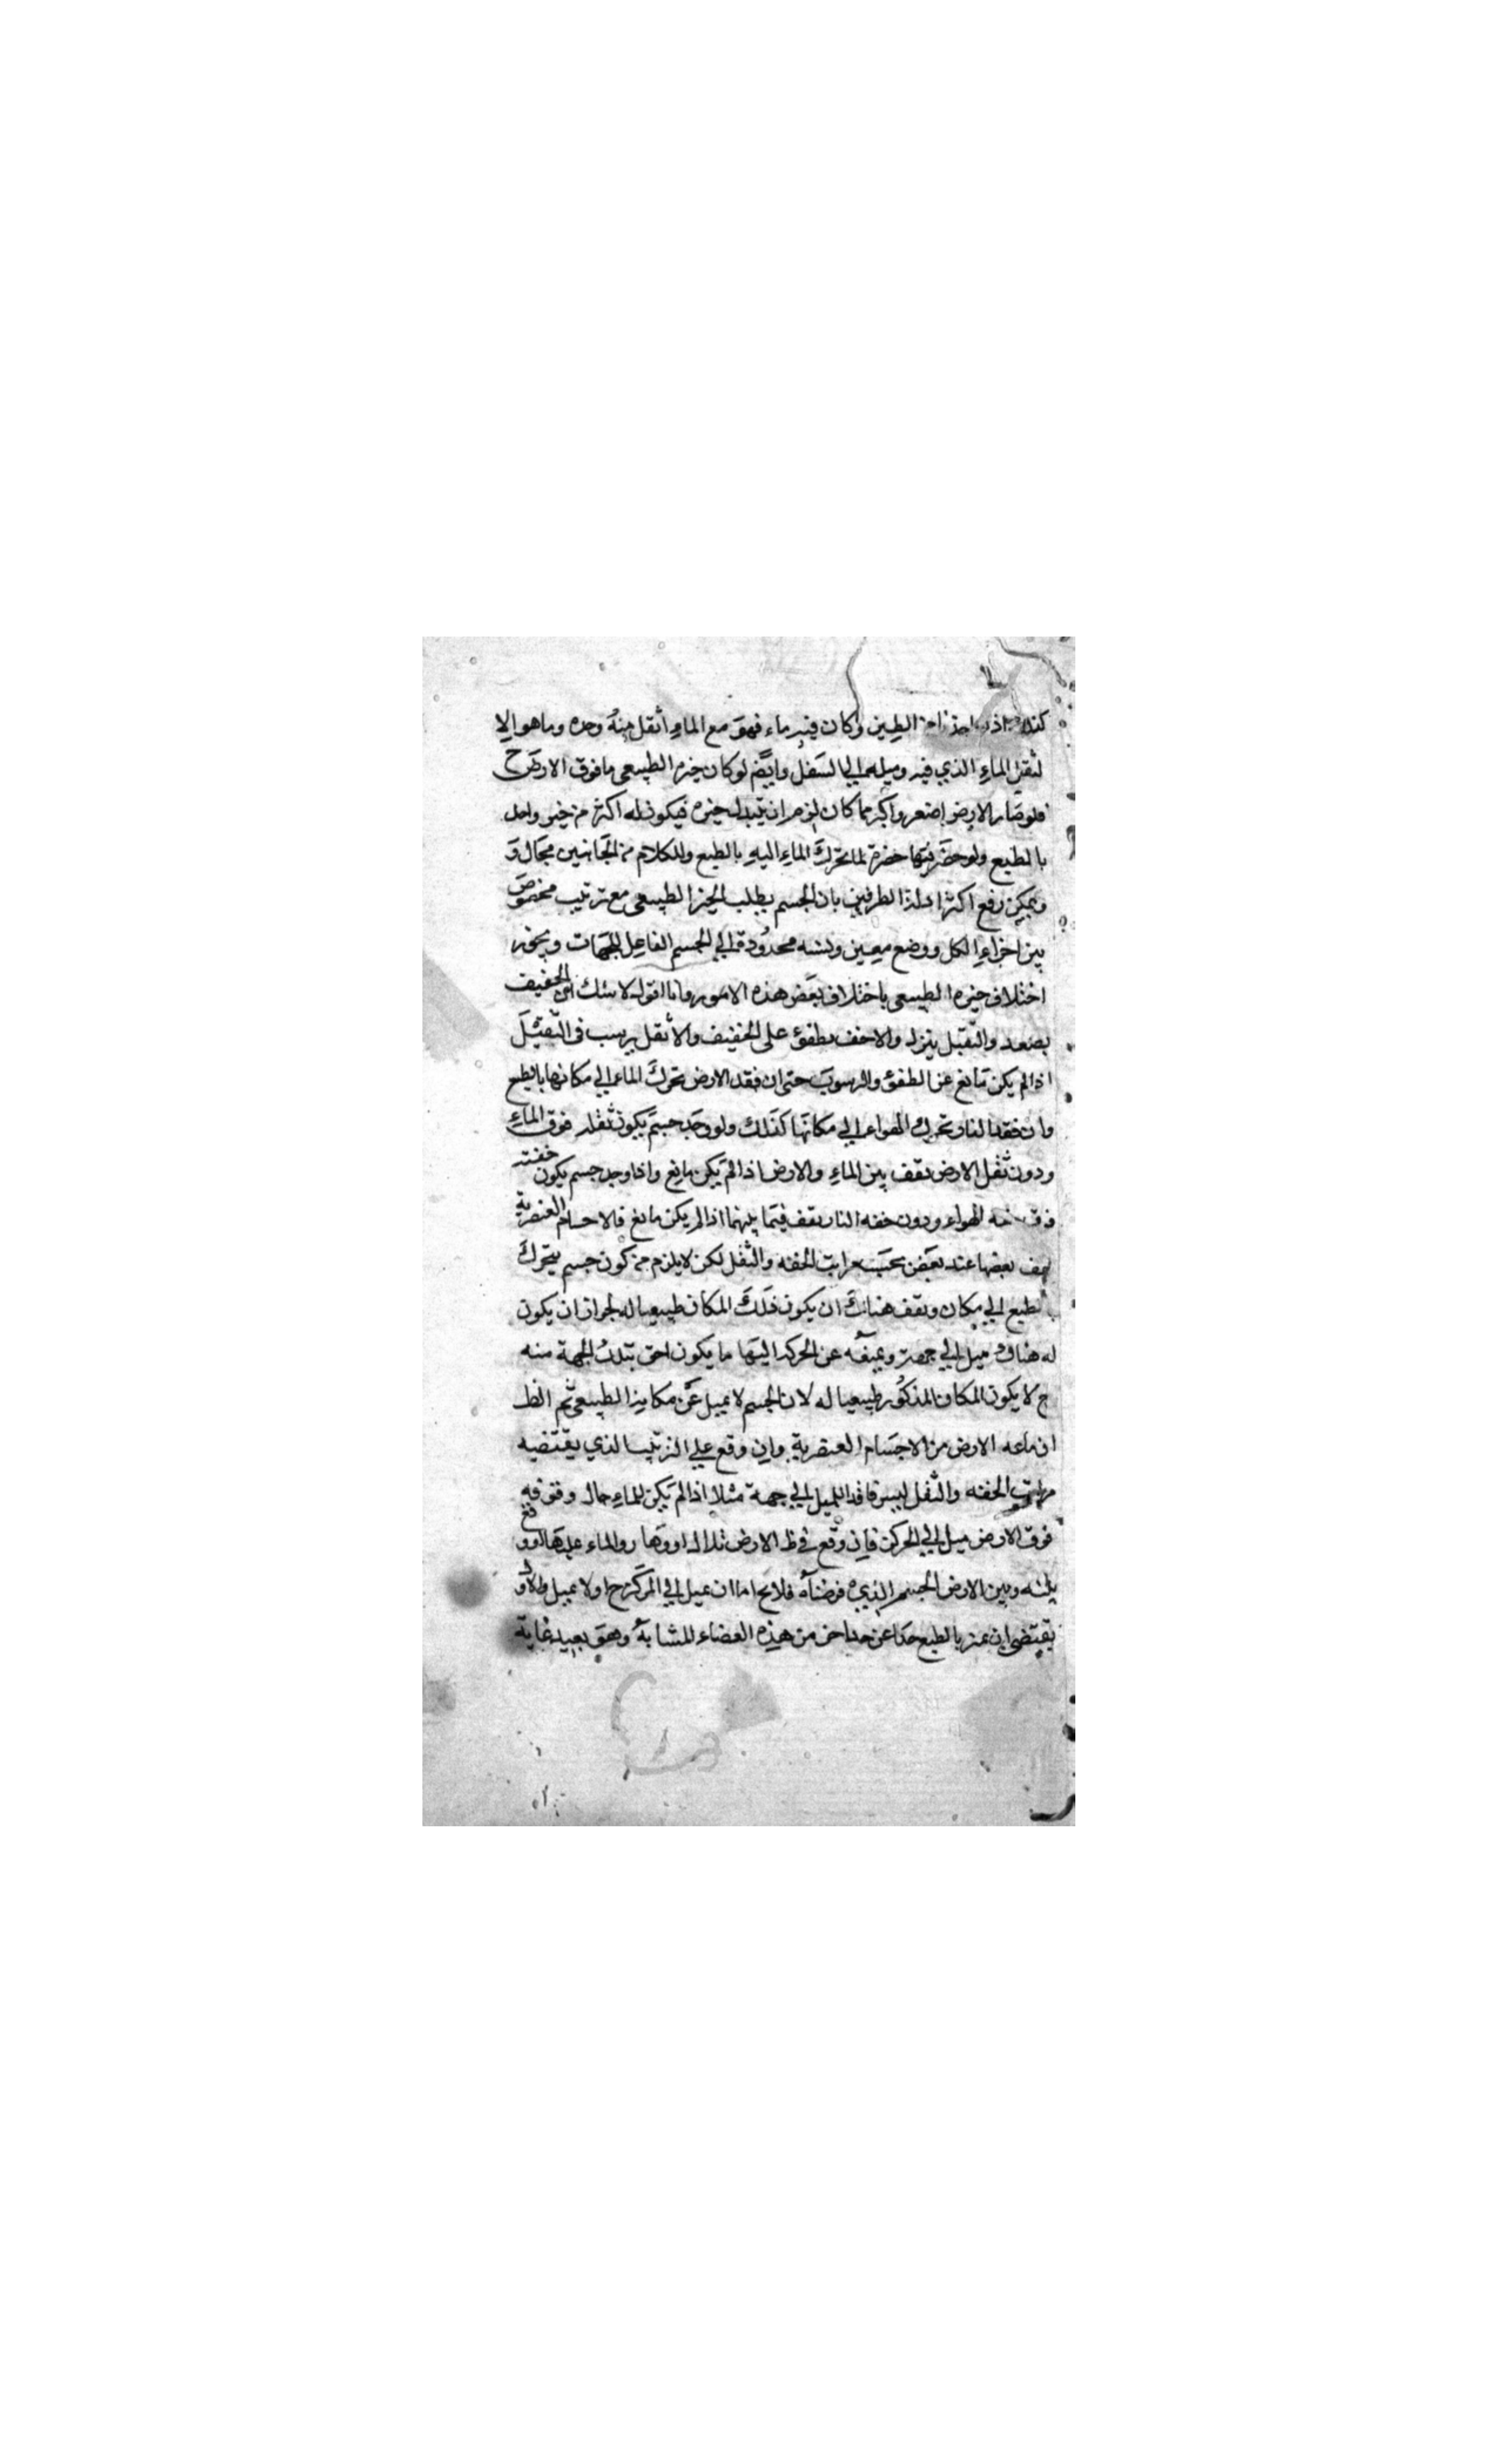 الطين وكان فيه ماء فهو مع الماء أثقل منه وحده وما هو الا
لثقل الماء الذي فيه وميله الى السفل وايضم لو كان حيزه الطبيعى ما فوق الارض ح
فلو صار الارض اصغر واكبر مما كان لزم ان يتبدل حيزه فيكون له اكثر من حيز واحد
بالطبع ولو حضر بها حضرة لما تحرك الماء اليه بالطبع وللكلام من الجانبين مجال و
ويمكن رفع اكثر ادلة الطرفين بان الجسم يطلب الحيز الطبيعى مع ترتيب مخصوص
بين اجزاء الكل ووضع معين ونسبه محدودة الى الجسم الفاعل للجهات ويجوز
اختلاف حيزه الطبيعى باختلاف بعض هذه الامور وانا اقول لا شك ان الخفيف
يصعد والثقيل ينزل والاخف يطفؤ على الخفيف والأثقل يرسب فى الثقيل
اذا لم يكن مانع عن الطفؤ والرسوب حتى ان فقد الارض تحرك الماء الى مكانها بالطبع
وان فقد النار تحرك الهواء الى مكانها كذلك ولو وجد جسم يكون ثقله فوق الماء
ودون ثقل الارض يقف بين الماء والارض اذا لم يكن مانع واذا وجد جسم يكون خفته
الهواء ودون خفه النار يقف فيما بينهما اذا لم يكن مانع فالاجسام العنصرية
يقف بعضها عند بعض بحسب مراتب الخفه والثقل لكن لا يلزم من كون جسم يتحرك
بالطبع الى مكان ويقف هناك ان يكون ذلك المكان طبيعيا له لجواز ان يكون
له هناك ميل الى جهة ويمنعه عن الحركة اليها ما يكون احق بتلك الجهة منه
ح لا يكون المكان المذكور طبيعيا له لان الجسم لا يميل عن مكانه الطبيعى ثم الظ
ان ماعه الارض من الاجسام العنصرية وان وقع على الترتيب الذي يقتضيه
مراتب الخفه والثقل ليس فاقد الميل الى جهة مثلا اذا لم يكن للماء حال وقوفه
فوق الارض ميل الى المركز فان وقع فى الارض والماء عليها
بينه وبين الارض الجسم الذي فرضناه فلا يخ اما ان يميل الى المركز ح او لا يميل والاو
يقتضى ان يميز بالطبع حدا عن حد اخر من هذه الفضاء المشابه وهو بعيد غاية